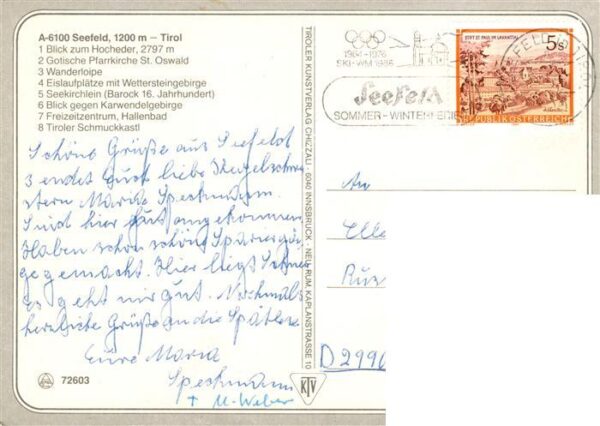 A-6100 Seefeld, 1200 m – Tirol
1 Blick zum Hocheder, 2797 m
2 Gotische Pfarrkirche St. Oswald
3 Wanderloipe
4 Eislaufplätze mit Wettersteingebirge
5 Seekirchlein (Barock 16. Jahrhundert)
6 Blick gegen Karwendelgebirge
7 Freizeitzentrum, Hallenbad
8 Tiroler Schmuckkastl
Schöne Grüße aus Seefeld
sendet Euch liebe Kegelschwe
stern Maria Speckmann.
Sind hier gut angekommen
Haben schon schöne Spaziergän
ge gemacht. Hier liegt Schnee
Es geht mir gut. Nochmals
herzliche Grüße an die
Eure Maria
Speckmann
+ M. Weber
72603
TIROLER KUNSTVERLAG CHIZZALI · 6040 INNSBRUCK · NEU-RUM, KAPLANSTRASSE 10
KTV
1964-1976
SKI-WM 1985
Seefeld
SOMMER - WINTER
STIFT ST. PAUL IM LAVANTTAL
5s
REPUBLIK ÖSTERREICH
An
Elle
D 2990